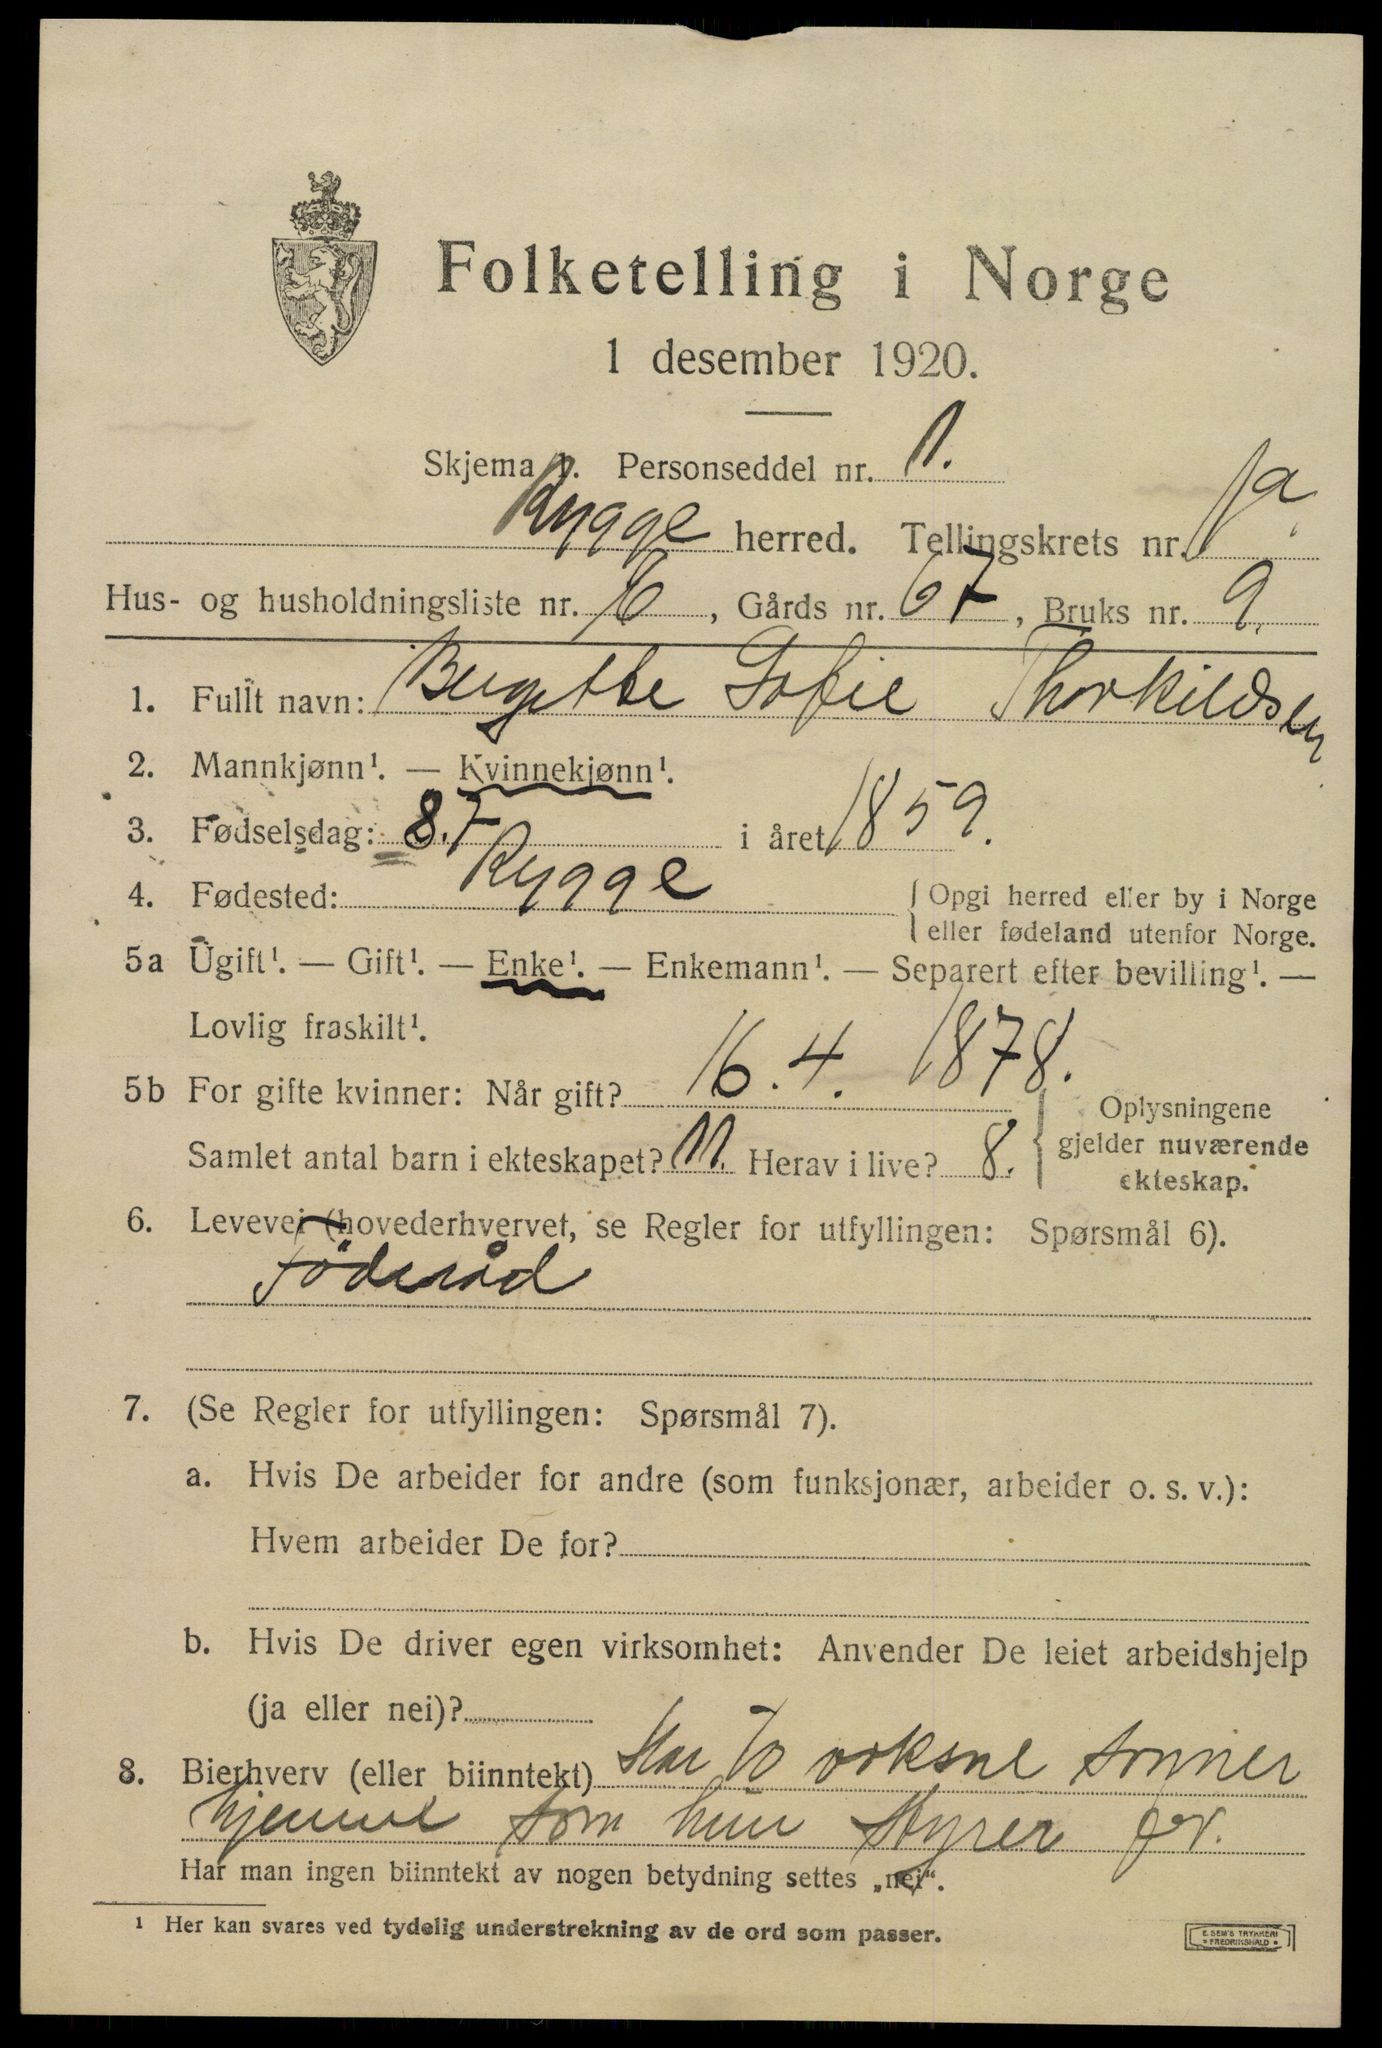 Folketelling i Norge
1 desember 1920.
Skjema 1. Personseddel nr. 1.
Rygge herred. Tellingskrets nr.
Hus- og husholdningsliste nr. , Gårds nr. 67 , Bruks nr. 9.
1. Fullt navn: Birgitte Sofie Thorkildsen
2. Mannkjønn¹. — Kvinnekjønn¹.
3. Fødselsdag: 8.7 i året 1859.
4. Fødested: Rygge
{ Opgi herred eller by i Norge
eller fødeland utenfor Norge.
5a Ugift¹. — Gift¹. — Enke¹. — Enkemann¹. — Separert efter bevilling¹. —
Lovlig fraskilt¹.
5b For gifte kvinner: Når gift? 16.4. 1878.
Samlet antal barn i ekteskapet? 11. Herav i live? 8.
{ Oplysningene
gjelder nuværende
ekteskap.
6. Levevei (hovederhvervet, se Regler for utfyllingen: Spørsmål 6).
Föderåd
7. (Se Regler for utfyllingen: Spørsmål 7).
a. Hvis De arbeider for andre (som funksjonær, arbeider o. s. v.):
Hvem arbeider De for?
b. Hvis De driver egen virksomhet: Anvender De leiet arbeidshjelp
(ja eller nei)?
8. Bierhverv (eller biinntekt) Har to voksne sønner
hjemme som hun styrer for.
Har man ingen biinntekt av nogen betydning settes „nei“.
¹ Her kan svares ved tydelig understrekning av de ord som passer.
E. SEM'S TRYKKERI
FREDRIKSHALD